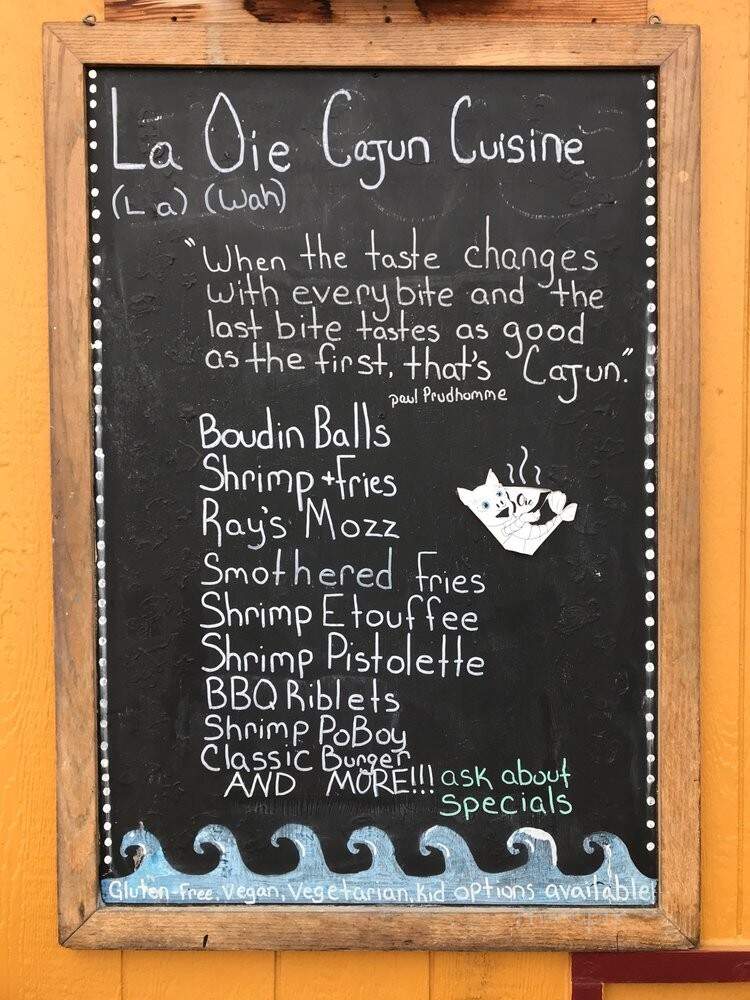 La Oie Cajun Cuisine
(La) (Wah)
"When the taste changes
with every bite and the
last bite tastes as good
as the first, that's Cajun."
paul Prudhomme
Boudin Balls
Shrimp + fries
Ray's Mozz
Oie
Smothered fries
Shrimp Etouffee
Shrimp Pistolette
BBQ Riblets
Shrimp PoBoy
Classic Burger
AND MORE!!! ask about
specials
Gluten-free, Vegan, Vegetarian, Kid options available